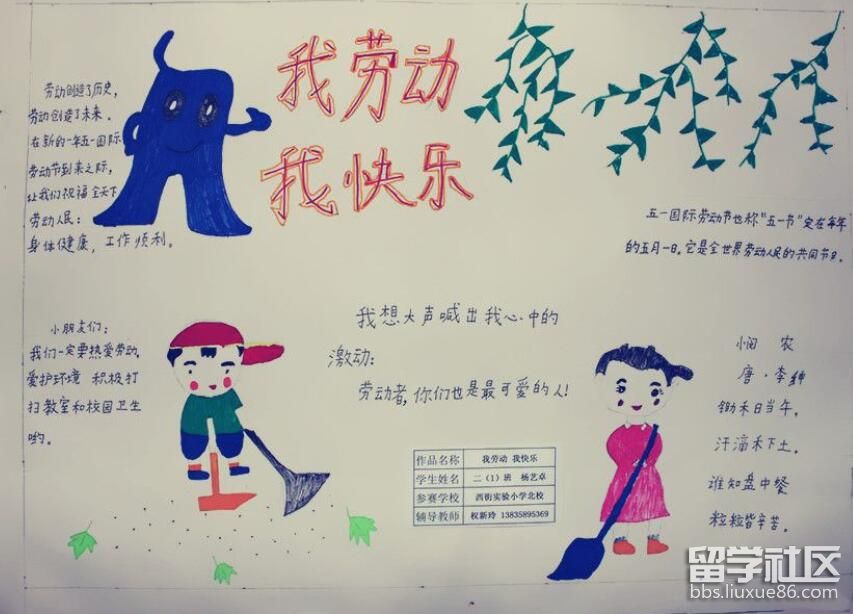 我劳动
我快乐
劳动创造了历史,
劳动创造了未来.
在新的一年五一国际
劳动节到来之际,
让我们祝福全天下
劳动人民:
身体健康,工作顺利。
五一国际劳动节也称"五一节"定在每年
的五月一日。它是全世界劳动人民的共同节日。
小朋友们:
我们一定要热爱劳动,
爱护环境 积极打
扫教室和校园卫生
哟。
我想大声喊出我心中的
激动:
劳动者,你们也是最可爱的人!
悯 农
唐·李绅
锄禾日当午,
汗滴禾下土。
谁知盘中餐
粒粒皆辛苦。
作品名称 我劳动 我快乐
学生姓名 二(1)班 杨艺卓
参赛学校 西街实验小学北校
辅导教师 权新玲 13835895369
留学社区
bbs.liuxue86.com